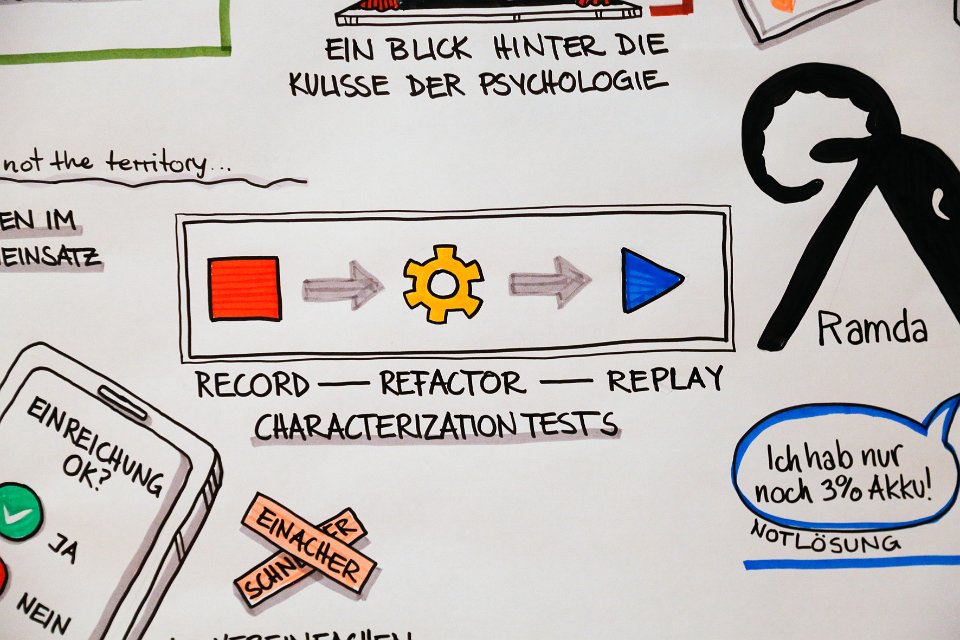 EIN BLICK HINTER DIE
KULISSE DER PSYCHOLOGIE
not the territory...
EN IM
EINSATZ
RECORD — REFACTOR — REPLAY
CHARACTERIZATION TESTS
Ramda
EINREICHUNG
OK?
JA
NEIN
EINACHER
Ich hab nur
noch 3% Akku!
NOTLÖSUNG
VEREINFACHEN